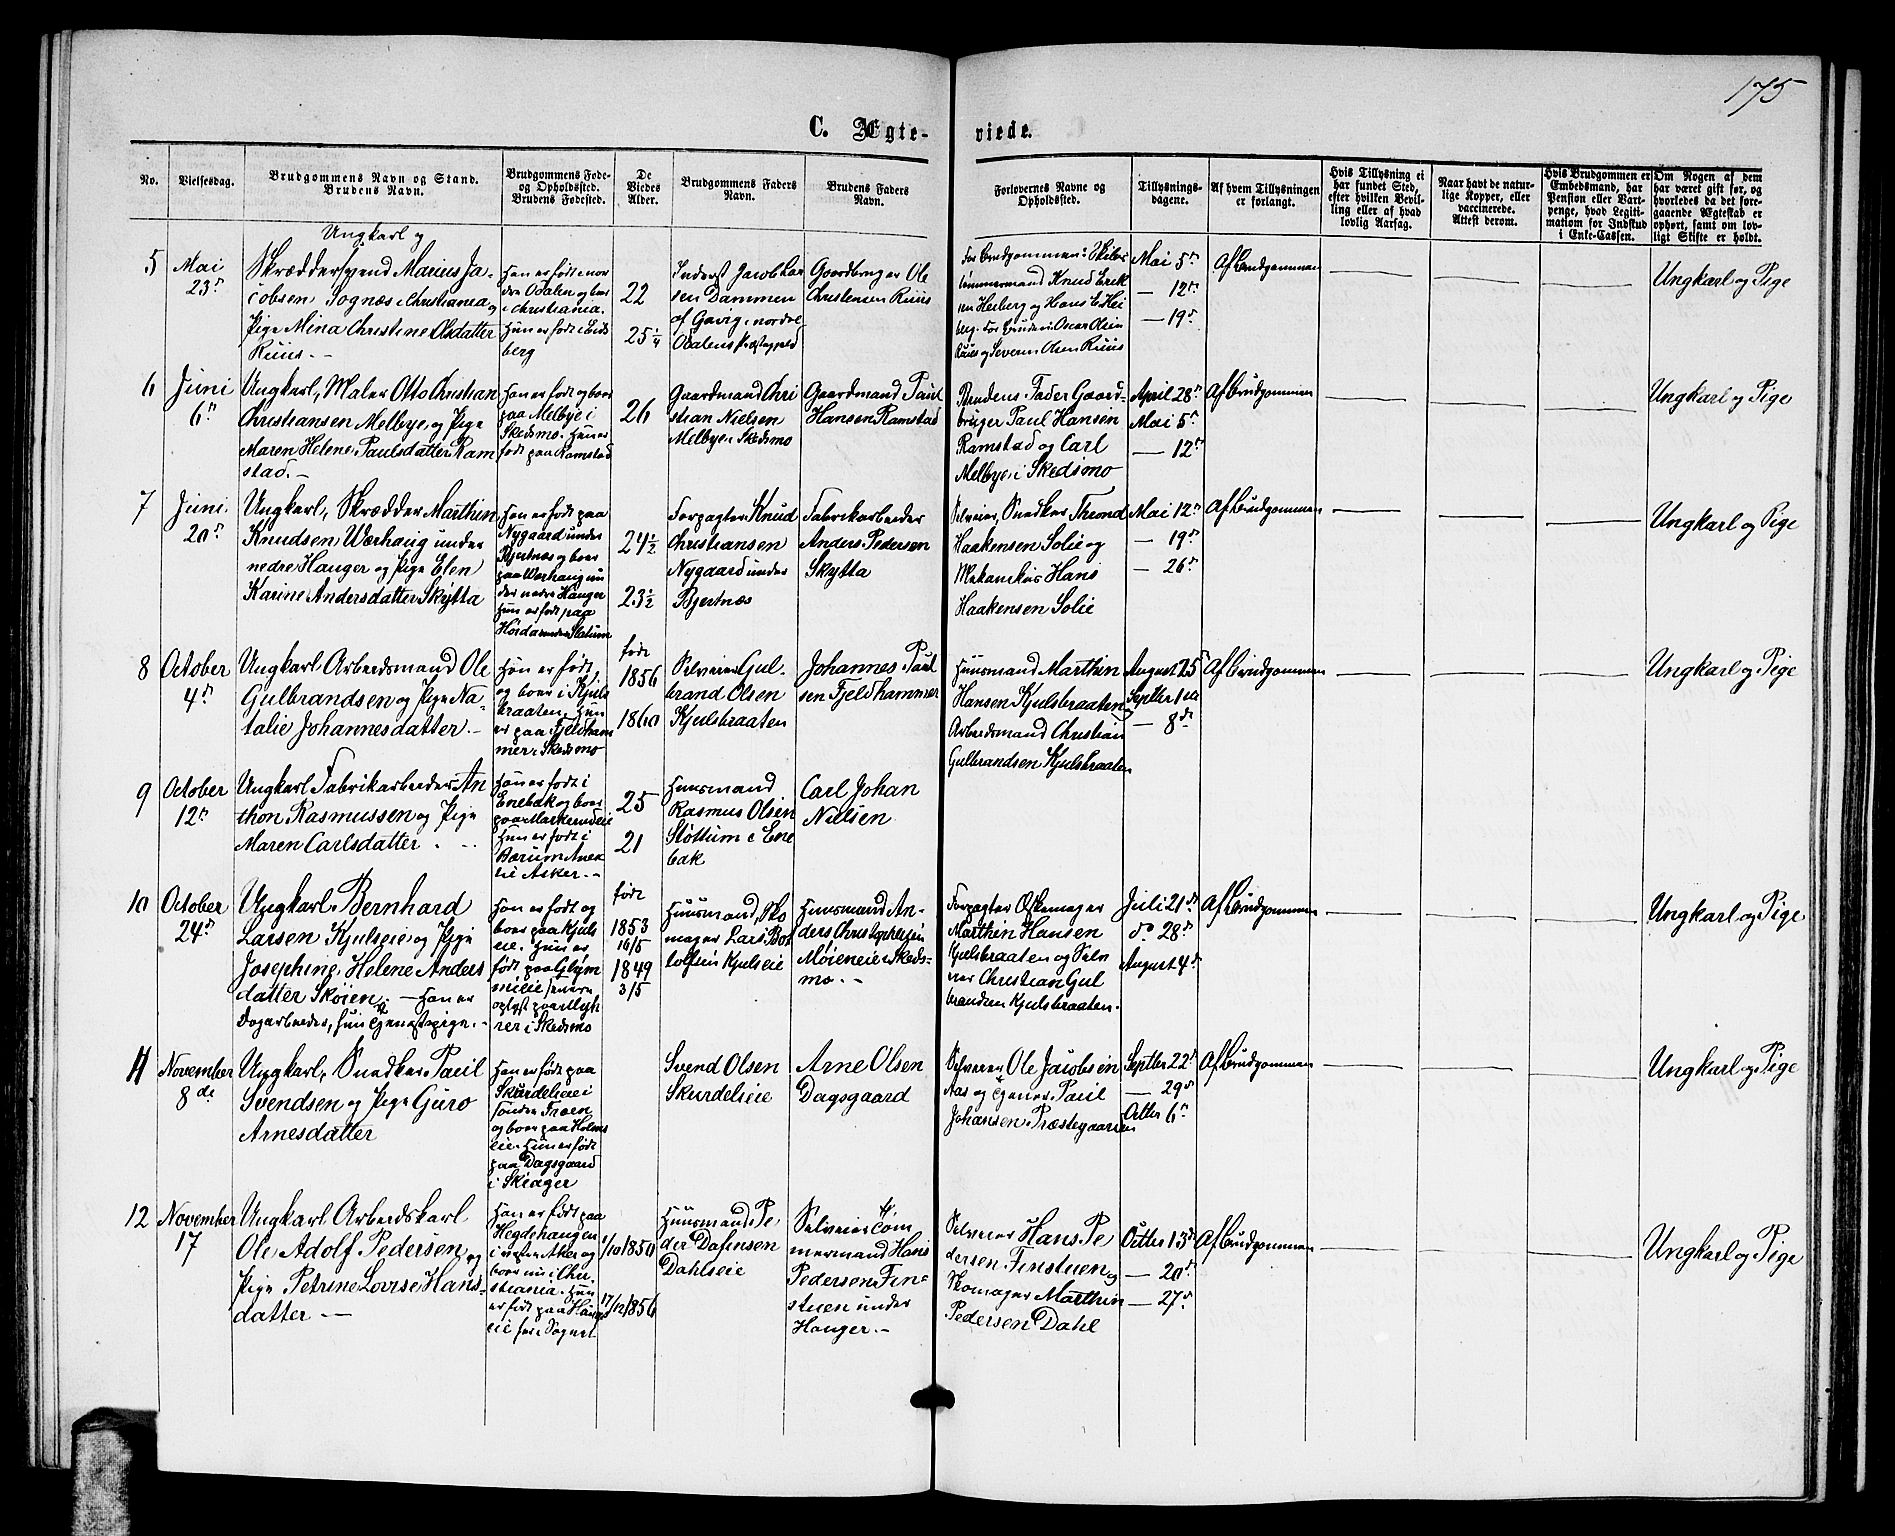 175
C. Ægte-
viede.
No.
Vielsesdag.
Brudgommens Navn og Stand.
Brudens Navn.
Brudgommens Føde-
og Opholdssted.
Brudens Fødested.
De
Viedes
Alder.
Brudgommens Faders
Navn.
Brudens Faders
Navn.
Forlovernes Navne og
Opholdssted.
Tillysnings-
dagene.
Af hvem Tillysningen
er forlangt.
Hvis Tillysning ei
har fundet Sted,
efter hvilken Bevil-
ling eller af hvad
lovlig Aarsag.
Naar havt de natur-
lige Kopper, eller
vaccinerede.
Attest derom.
Hvis Brudgommen er
Embedsmand, har
Pension eller Vart-
penge, hvad Legiti-
mation for Indskud
i Enke-Cassen.
Om Nogen af dem
har været gift før, og
hvorledes da det fore-
gaaende Ægteskab er
ophørt, samt om lov-
ligt Skifte er holdt.
5
Mai
23
Ungkarl og
Skræddersvend Marius Ja-
cobsen Sognæs i Christiania og
Pige Mina Christine Olsdatter
Ruus.
Han er født i nor
dre Odalen og boer
i Christiania.
Hun er født i
berg
22
25 1/4
Inderst Jacob Lar
sen Dammen
af Gavig, nordre
Odalens Præstegjeld
Gaardbruger Ole
Christensen Ruus
For Brudgommen:
Tømmermand Knud Erik
sen Heiberg og Hans E. Hei
berg. For Bruden: Oscar Olsen
Ruus og Severin Olsen Ruus
Mai 5
— 12
— 19
Af Brudgommen
Ungkarl og Pige
6
Juni
6
Ungkarl, Maler Otto Christian
Christiansen Melbye, og Pige
Maren Helene Paulsdatter Ram
stad.
Han er født og boer
paa Melbye i
Skedsmo. Hun er
født paa Ramstad
26
Gaardmand Chri
stian Nielsen
Melbye i Skedsmo
Gaardmand Paul
Hansen Ramstad
Brudens Fader Gaard-
bruger Paul Hansen
Ramstad og Carl
Melbye, i Skedsmo
April 28
Mai 5
— 12
Af Brudgommen
Ungkarl og Pige
7
Juni
20
Ungkarl, Skrædder Marthin
Knudsen Wærhaug under
nedre Hauger og Pige Elen
Karine Andersdatter Skytta
Han er født paa
Nygaard under
Bjertnæs og boer
paa Wærhaug un
der nedre Hauger
Hun er født paa
24 1/2
23 1/2
Forpagter Knud
Christiansen
Nygaard under
Bjertnæs
Fabrikarbeider
Anders Pedersen
Skytta
Selveier, Snedker Thrond
Haakensen Solie og
Mekanikus Hans
Haakensen Solie
Mai 12
— 19
— 26
Af Brudgommen
Ungkarl og Pige
8
October
4
Ungkarl Arbeidsmand Ole
Gulbrandsen og Pige Na-
talie Johannesdatter.
Han er født,
og boer i Kjuls
braaten. Hun
er paa Fjeldham
mer i Skedsmo
født
1856
1860
Selveier Gul-
brand Olsen
Kjulsbraaten
Johannes Paul
sen Fjeldhammer
Huusmand Marthin
Hansen Kjulsbraaten og
Arbeidsmand Christian
Gulbrandsen Kjulsbraaten
August 25
Septbr 1
— 8de
Af Brudgommen
Ungkarl og Pige
9
October
12
Ungkarl Fabrikarbeider An
thon Rasmussen og Pige
Maren Carlsdatter
Han er født i
Enebak og boer
paa Markerudeie
Hun er født i
Bærum Anex
til Asker.
25
21
Huusmand
Rasmus Olsen
Støttum i Ene
bak
Carl Johan
Nielsen
10
October
24
Ungkarl, Bernhard
Larsen Kjulseie og Pige
Josephine Helene Anders
datter Skøien. — Han er
Dagarbeider, hun Tjenestepige.
Han er født og
boer paa Kjuls
eie. Hun er
født paa
rer i Skedsmo
født
1853
16/5
1849
3/5
Huusmand, Sko
mager Lars Bot
tolfsen Kjulseie
Huusmand An-
ders Christophersen
Møieneie i Skeds-
mo.
Forpagter
Marthin Hansen
Kjulsbraaten og Selv
eier Christian Gul
brandsen Kjulsbraaten.
Juli 21
do 28
August 4
Af Brudgommen
Ungkarl og Pige
11
November
8de
Ungkarl, Snedker Paul
Svendsen og Pige Guro
Arnesdatter
Han er født paa
Skurdeleie i
søndre Froen
og boer paa Holms
eie. Hun er født
paa Dagsgaard
i Skiager
Svend Olsen
Skurdeleie
Arne Olsen
Dagsgaard
Selveier Ole Jacobsen
Aas og Tjener Paul
Johansen Præstegaarden
Septbr 22
— 29
Octbr 6
Af Brudgommen
Ungkarl og Pige
12
November
17
Ungkarl Arbeidskarl
Ole Adolf Pedersen og
Pige Petrine Lovise Hans-
datter —
Han er født paa
Hegdehaugen
i vestre Aker og
boer nu i Chri
stiania. Hun
er født paa Haug
eie her i Sognet
1/10 1850
17/12 1856
Huusmand Pe
der Dafinsen
Dahlseie
Selveier Tøm
mermand Hans
Pedersen Fin
stuen under
Hauger.
Selveier Hans Pe
dersen Finstuen og
Skomager Marthin
Pedersen Dahl
Octbr 13
— 20
— 27
Af Brudgommen
Ungkarl og Pige